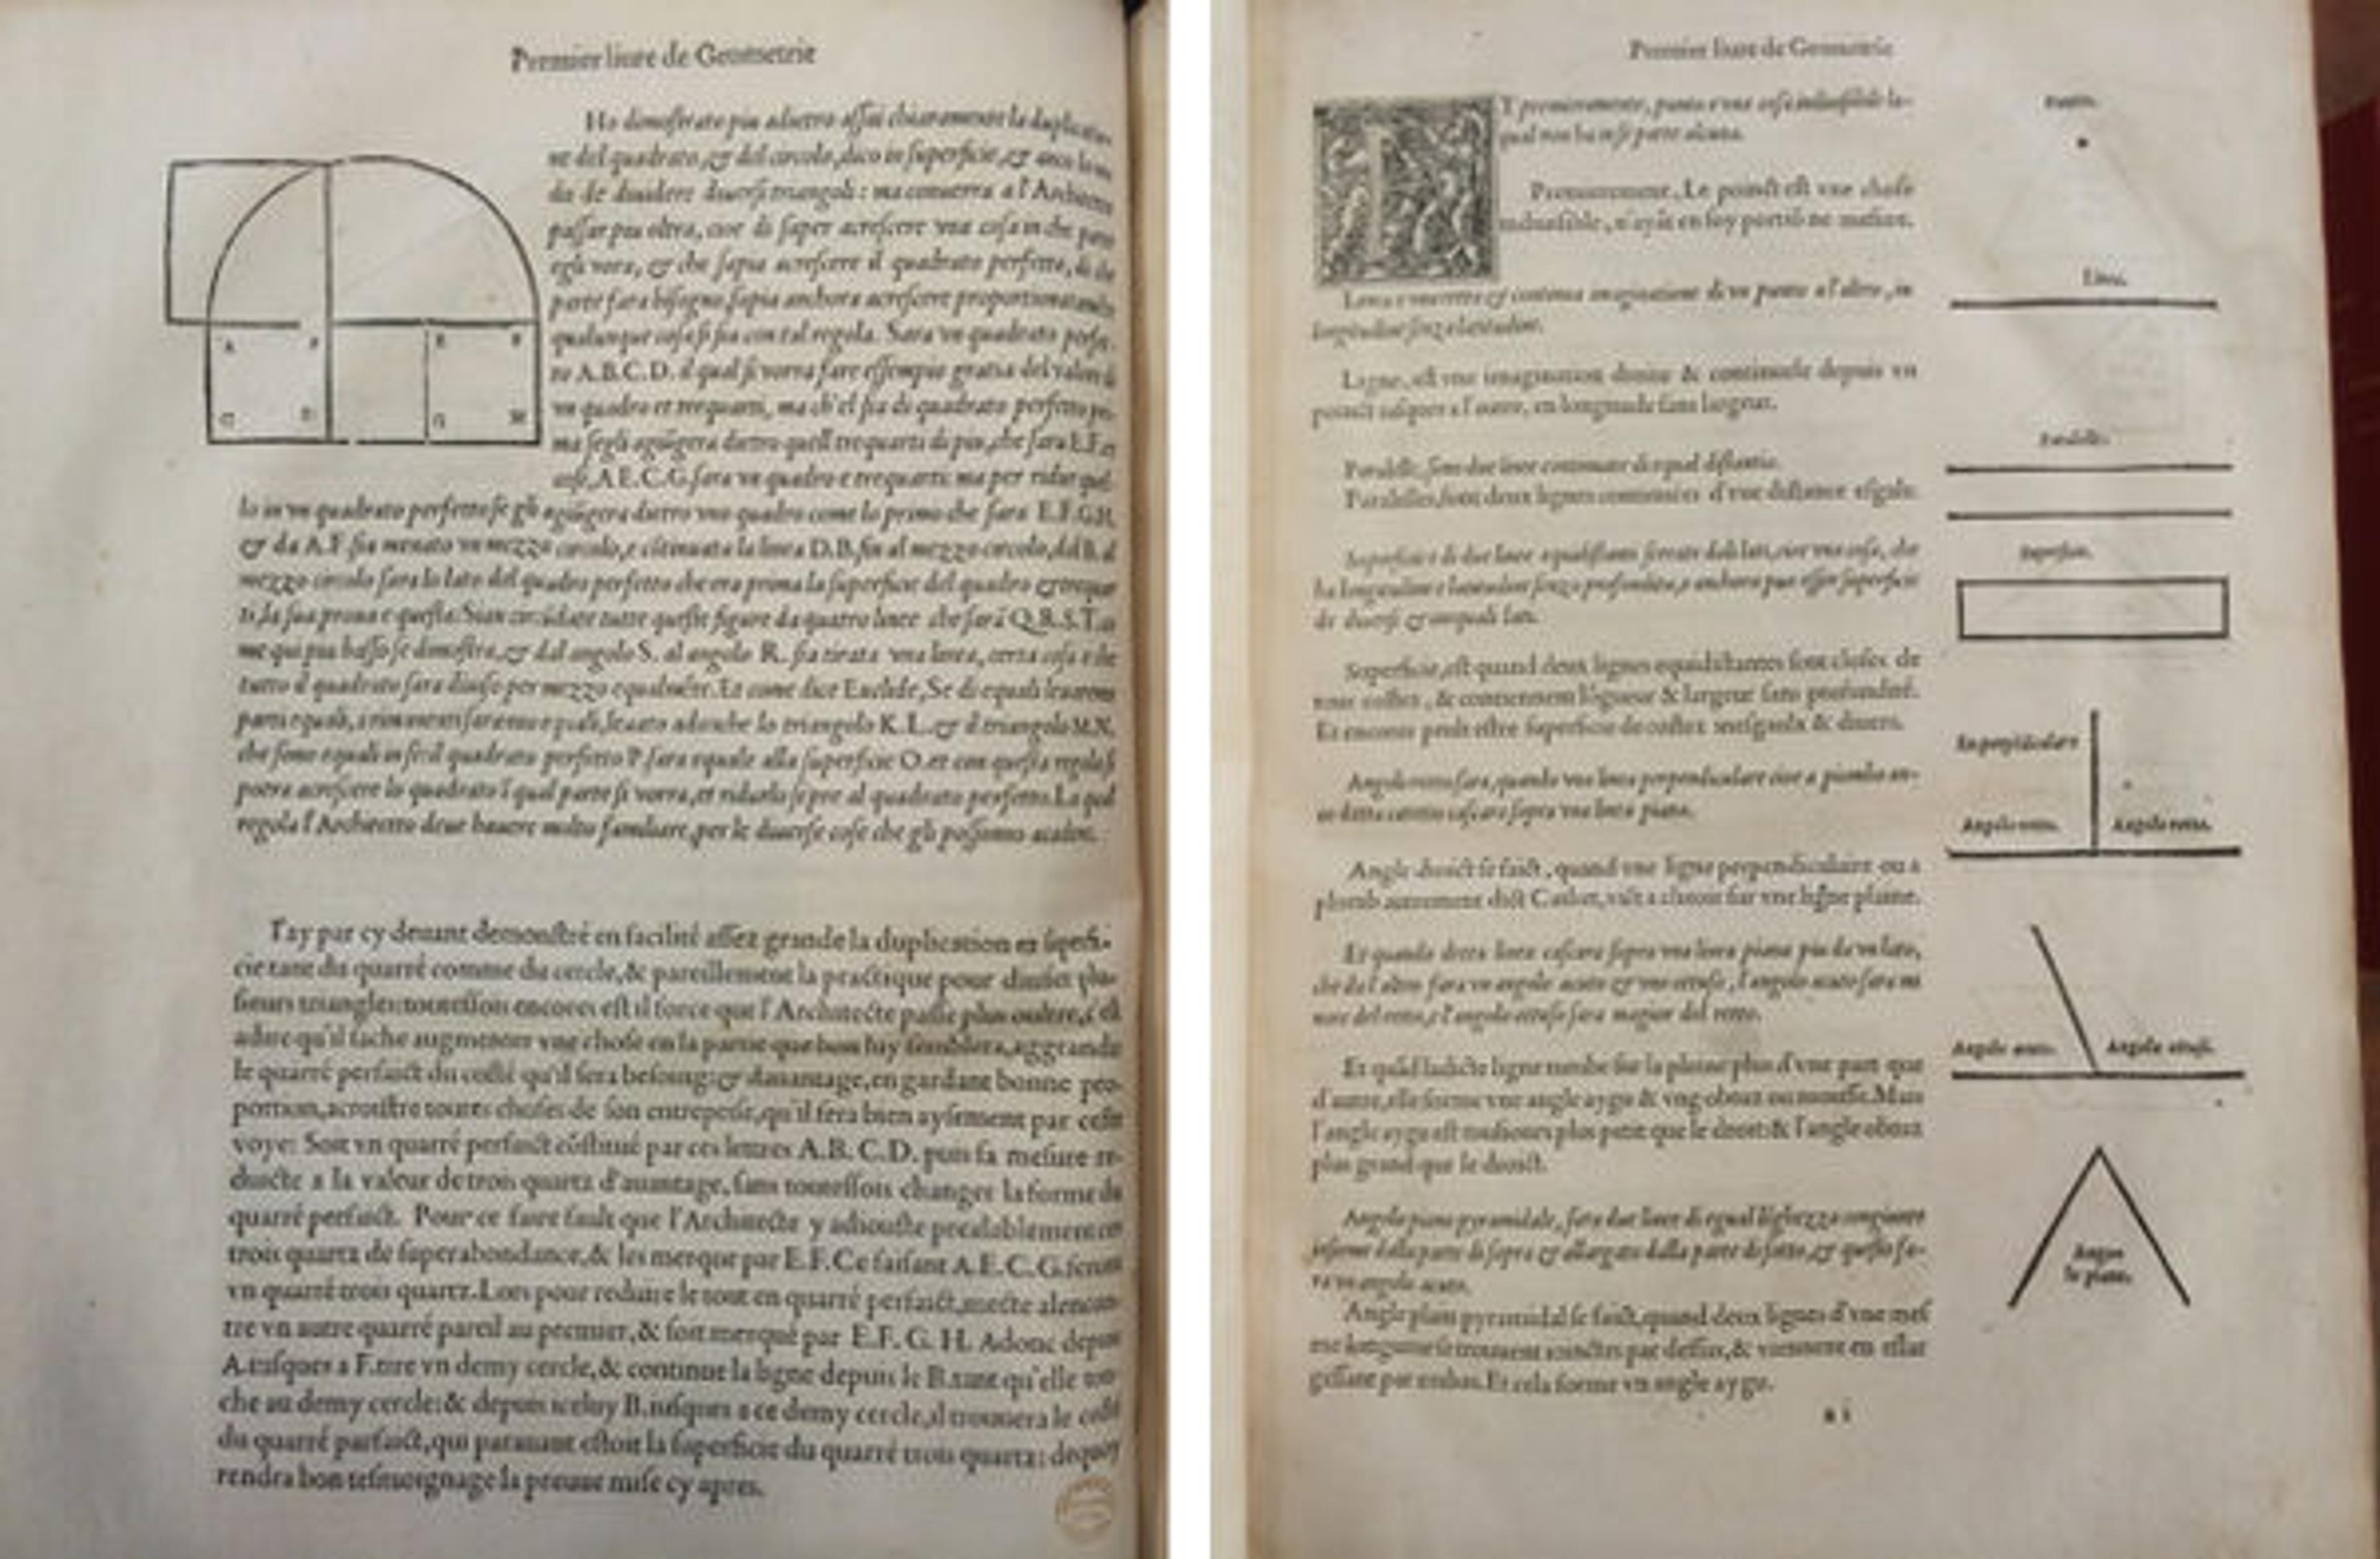 Premier liure de Geometrie
Ho dimoſtrato piu adietro aſſai chiaramente la duplicatio
ne del quadrato, & del circolo, dico in ſuperficie, & anco lo mo
do de diuidere diuerſi triangoli: ma conuerra a l'Architetto
paſſar piu oltra, cioe di ſaper acreſcere vna coſa in che parte
egli vora, & che ſapia acreſcere il quadrato perfetto, di che
parte ſara biſogno, ſapia anchora acreſcere proportionatamẽte
qualunque coſa ſi ſia con tal regola. Sara vn quadrato perfe-
to A.B.C.D. il qual ſi vorra fare eſſempio gratia del valor di
vn quadro et tre quarti, ma ch'el ſia di quadrato perfetto pri-
ma ſe gli agiũgera dietro quelli tre quarti di piu, che ſara E.F. et
coſi, A E.C.G. ſara vn quadro e tre quarti: ma per ridur quel-
lo in vn quadrato perfetto ſe gli agiũgera dietro vno quadro come lo primo che ſara E.F.G.H.
& da A.F. ſia menato vn mezzo circolo, e cõtinuata la linea D.B. fin al mezzo circolo, dal B. al
mezzo circolo ſara lo lato del quadro perfetto che era prima la ſuperficie del quadro & tre quar
ti, la ſua proua e queſta: Sian circũdate tutte queſte figure da quatro linee che ſarã Q.R.S.T. co
me qui piu baſſo ſe dimoſtra, & dal angolo S. al angolo R. ſia tirata vna linea, certa coſa e che
tutto il quadrato ſara diuiſo per mezzo equalmẽte. Et come dice Euclide, Se di equali leuaremo
parti equali, i rimanenti ſaranno equali, leuato adonche lo triangolo K.L. & il triangolo M.N.
che ſono equali in ſe il quadrato perfetto P. ſara equale alla ſuperficie O. et con queſta regola ſi
potra acreſcere lo quadrato ĩ qual parte ſi vorra, et ridurlo ſẽpre al quadrato perfetto. La qual
regola l'Architetto deue hauere molto familiare, per le diuerſe coſe che gli poſſono acadere.
I'ay par cy deuant demonſtré en facilité aſſez grande la duplication en ſuperfi-
cie tant du quarré comme du cercle, & pareillement la practique pour diuiſer plu-
ſieurs triangles: touteſſois encores eſt il force que l'Architecte paſſe plus oultre, c'eſt
adire qu'il ſache augmenter vne choſe en la partie que bon luy ſemblera, aggrandir
le quarré perfaict du coſté qu'il ſera beſoing: & dauantage, en gardant bonne pro-
portion, acroiſtre toutes choſes de ſon entrepriſe, qu'il fera bien ayſement par ceſte
voye: Soit vn quarré perfaict cõſtitué par ces lettres A.B.C.D. puis ſa meſure re-
duicte a la valeur de trois quartz d'auantage, ſans touteſſois changer la forme du
quarré perfaict. Pour ce faire fault que l'Architecte y adiouſte prealablement ces
trois quartz de ſuperabondance, & les merque par E.F. Ce faiſant A.E.C.G. ſeront
vn quarré trois quartz. Lors pour reduire le tout en quarré perfaict, mecte alencon-
tre vn autre quarré pareil au premier, & ſoit merqué par E.F.G.H. Adonc depuis
A. iuſques a F. tire vn demy cercle, & continue la ligne depuis le B. tant qu'elle tou-
che au demy cercle: & depuis iceluy B. iuſques a ce demy cercle, il trouuera le coſté
du quarré parfaict, qui parauant eſtoit la ſuperficie du quarré trois quartz: dequoy
rendra bon teſmoignage la preuue miſe cy apres.
A B E F
C D G H
Premier liure de Geometrie
T premieramente, punto e vna coſa indiuiſibile la-
qual non ha in ſe parte alcuna.
Premierement, Le poinct eſt vne choſe
indiuiſible, n'ayãt en ſoy portiõ ne meſure.
Linea e vna retta & continua imaginatione di vn punto a l'altro, in
longitudine ſenza latitudine.
Ligne, eſt vne imagination droite & continuele depuis vn
poinct iuſques a l'autre, en longitude ſans largeur.
Paralelle, ſono due linee continuate di equal diſtantia.
Paralelles, ſont deux lignes continuées d'vne diſtance eſgale.
Superficie e di due linee equidiſtanti ſerrate dali lati, cioe vna coſa, che
ha longitudine e latitudine ſenza profondita, e anchora puo eſſer ſuperficie
de diuerſi & inequali lati.
Superficie, eſt quand deux lignes equidiſtantes ſont cloſes de
tous coſtez, & contiennent lõgueur & largeur ſans profundité.
Et encores peult eſtre ſuperficie de coſtez ineſgaulx & diuers.
Angolo retto ſara, quando vna linea perpendiculare cioe a piombo an-
co detta cateto caſcara ſopra vna linea piana.
Angle droict ſe faict, quand vne ligne perpendiculaire ou a
plomb autrement dict Cathet, viẽt a cheoir ſur vne ligne plaine.
Et quando detta linea caſcara ſopra vna linea piana piu da vn lato,
che da l'altro fara vn angolo acuto & vno ottuſo, l'angolo acuto ſara mi
nore del retto, e l'angolo ottuſo ſara magior del retto.
Et quãd ladicte ligne tumbe ſur la plaine plus d'vne part que
d'autre, elle forme vne angle aygu & vng obtuz ou mouſſe. Mais
l'angle aygu eſt touſiours plus petit que le droit: & l'angle obtuz
plus grand que le droict.
Angolo piano pyramidale, ſara due linee di equal lõghezza congiunte
inſieme dalla parte di ſopra & allargate dalla parte di ſotto, & queſto ſa-
ra vn angolo acuto.
Angle plain pyramidal ſe faict, quand deux lignes d'vne meſ
me longueur ſe trouuent ioinctes par deſſus, & viennent en eſlar
giſſant par embas. Et cela forme vn angle aygu.
Punto.
Linea.
Paralelle.
Superficie.
Angolo retto. Angolo retto.
Angolo acuto. Angolo ottuſo.
Angoo
lo piano.